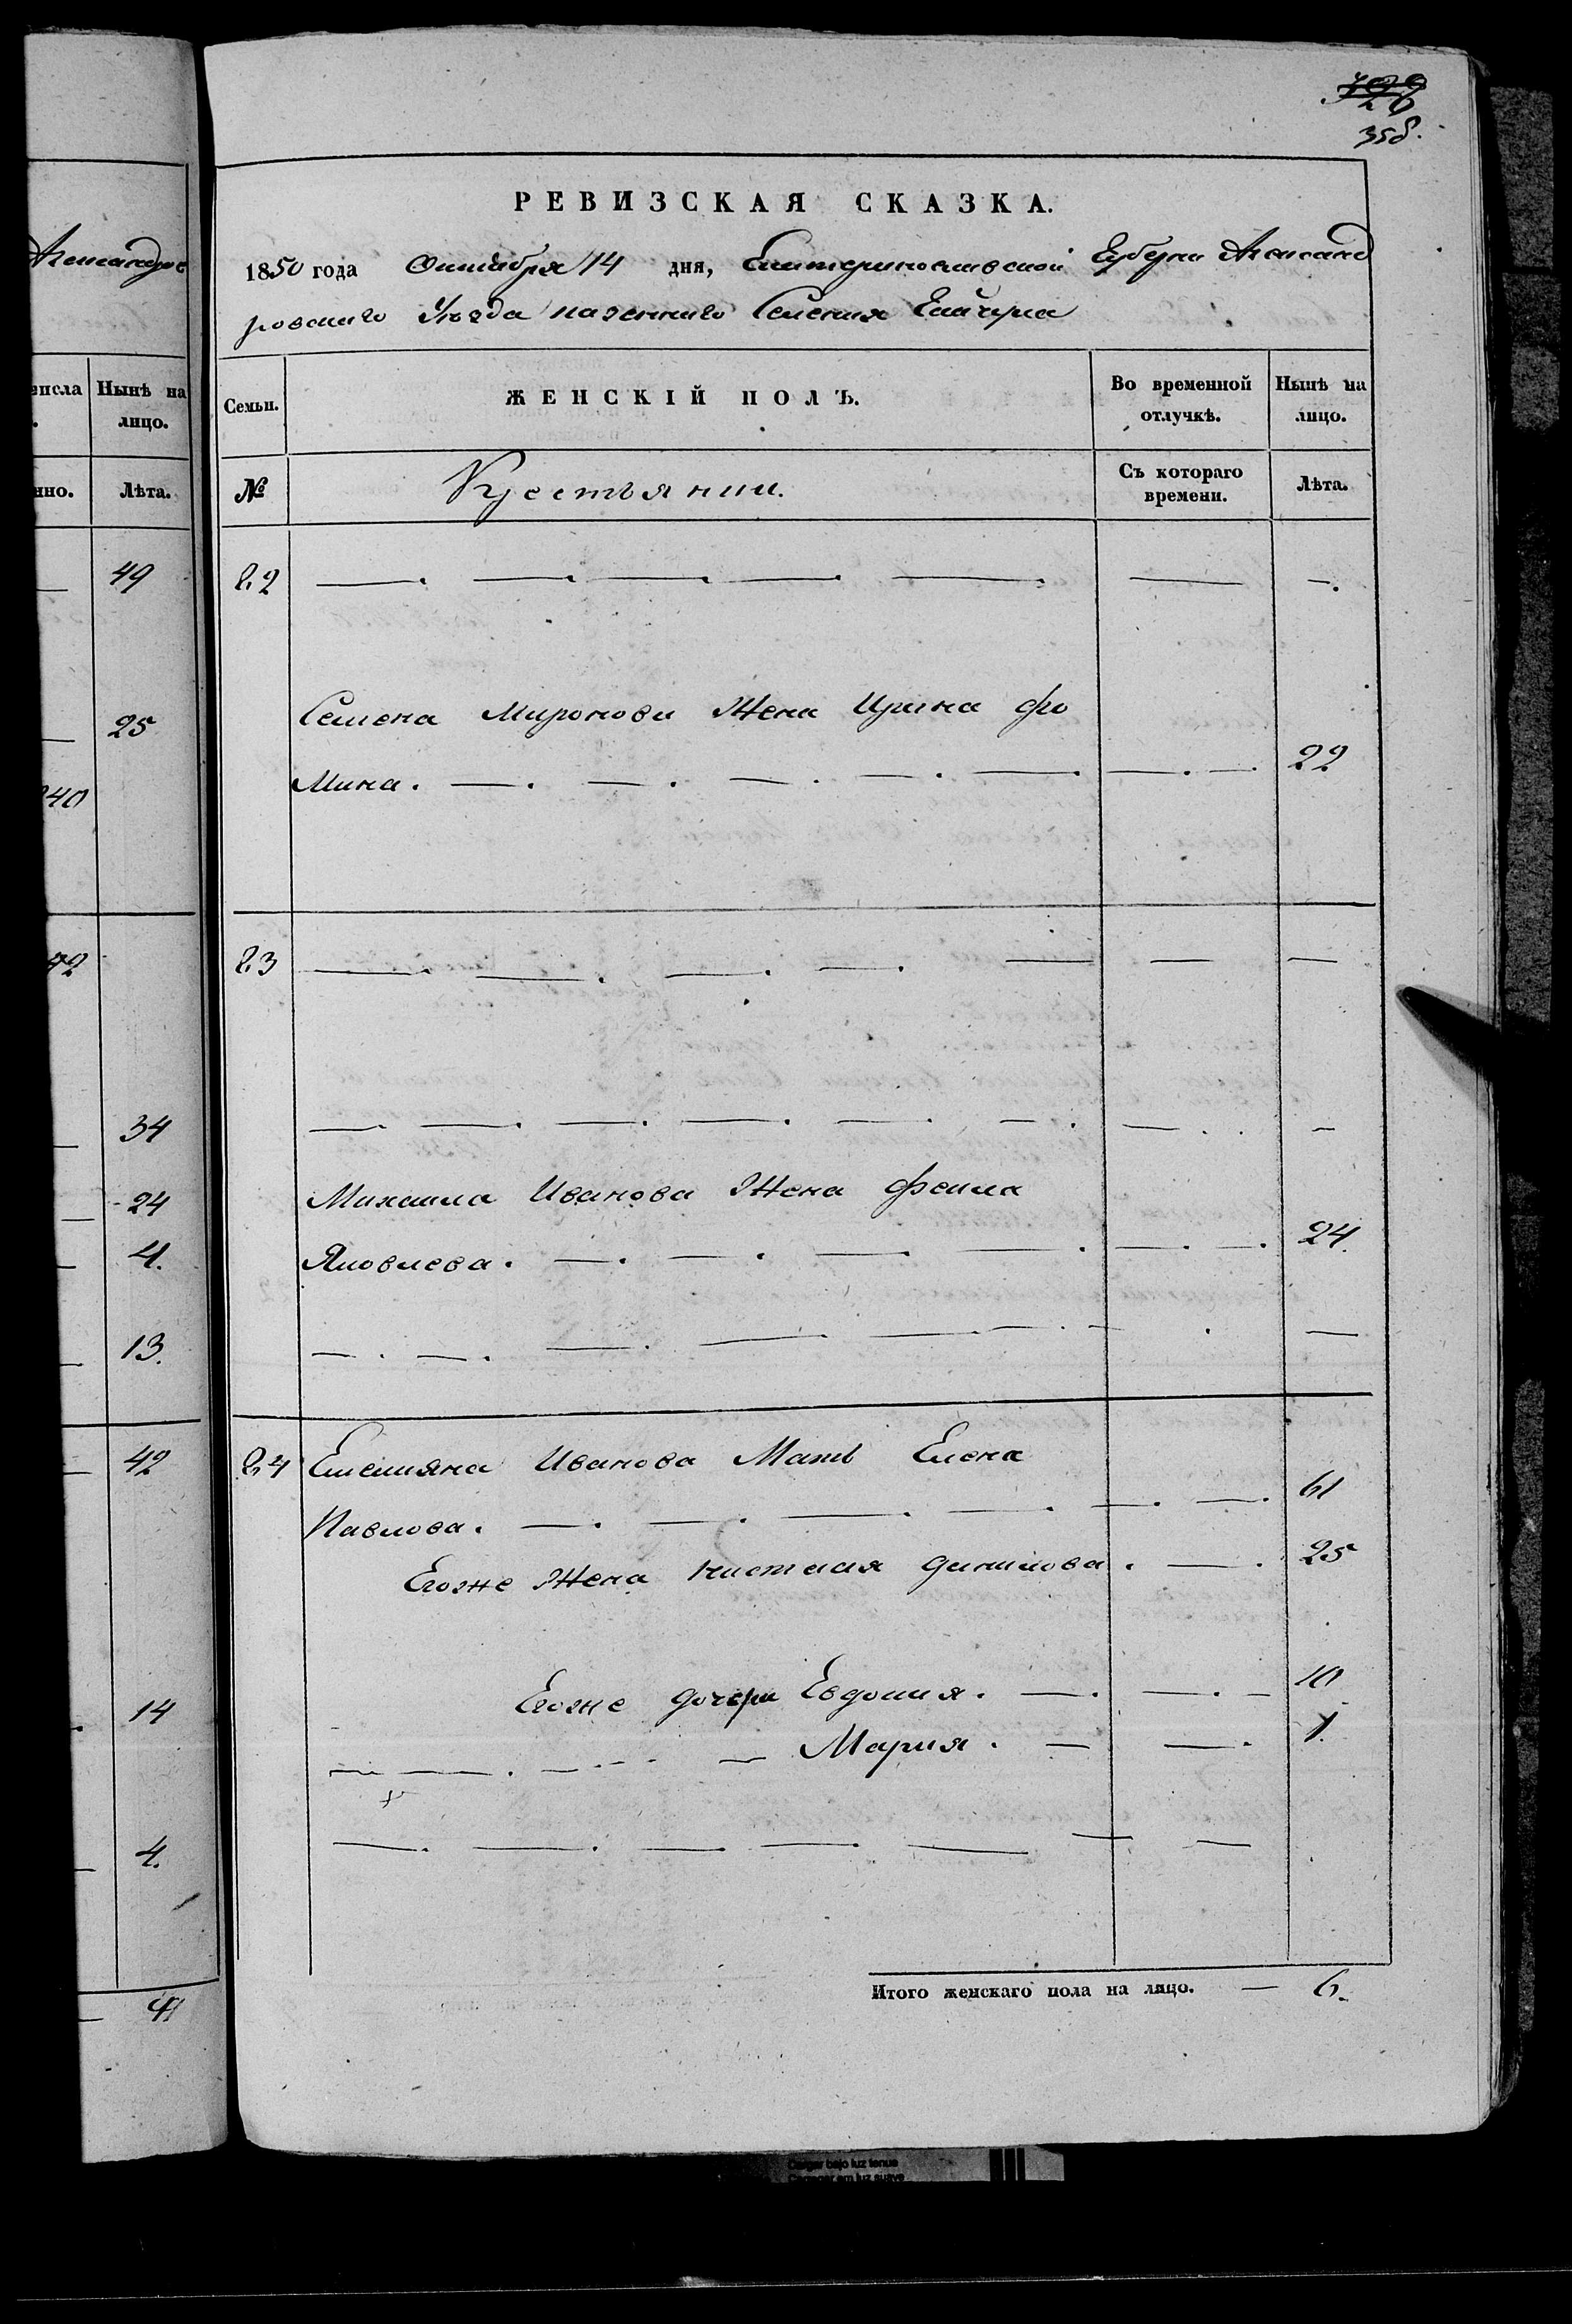 Александров
Ныне на
лицо.
Лѣта.
49
25
34
24
4.
13.
42
14
4.
358.
РЕВИЗСКАЯ СКАЗКА.
1850 года Октября 14 дня, Екатеринославской Губерни Александ
ровскаго Уезда казеннаго Селения Енчура
Семьи.
ЖЕНСКІЙ ПОЛЪ.
Во временной отлучкѣ.
Нынѣ на лицо.
№
Крестьянки.
Съ котораго времени.
Лѣта.
22
Семена Миронова Жена Ирина фо
мина. 22
23
Михаила Иванова Жена фекла
Яковлева. 24.
24 Емельяна Иванова Мать Елена
Павлова. 61
Егоже Жена Настасия данилова. 25
Егоже дочери Евдокия. 10
Мария. 1.
Итого женскаго пола на лицо. — 6.